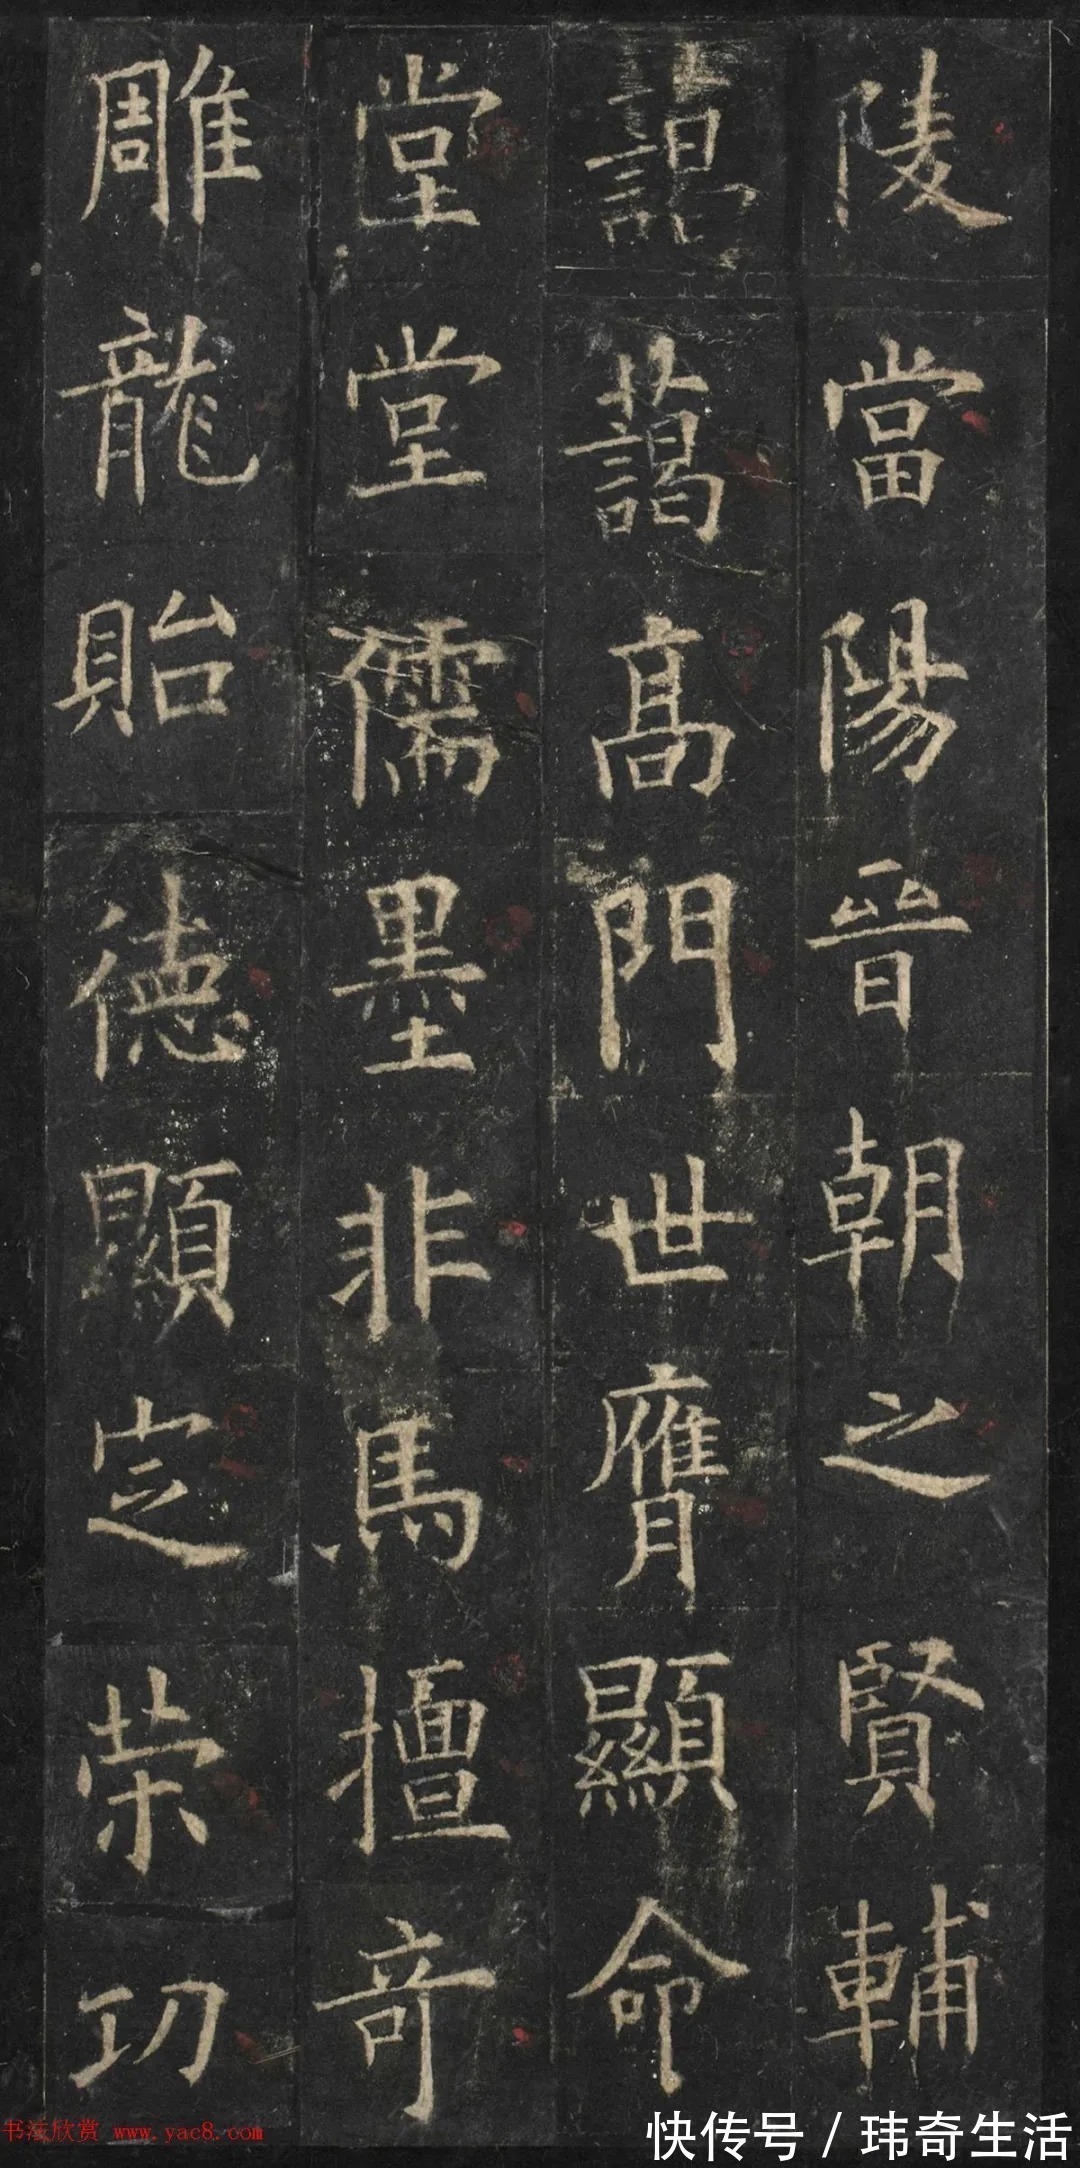 陵當陽晉朝之賢輔
謁藹高門世膺顯命
堂堂儒墨非馬擅奇
雕龍貽德顯定荣功
书法欣赏 www.yac8.com
快传号 / 玮奇生活